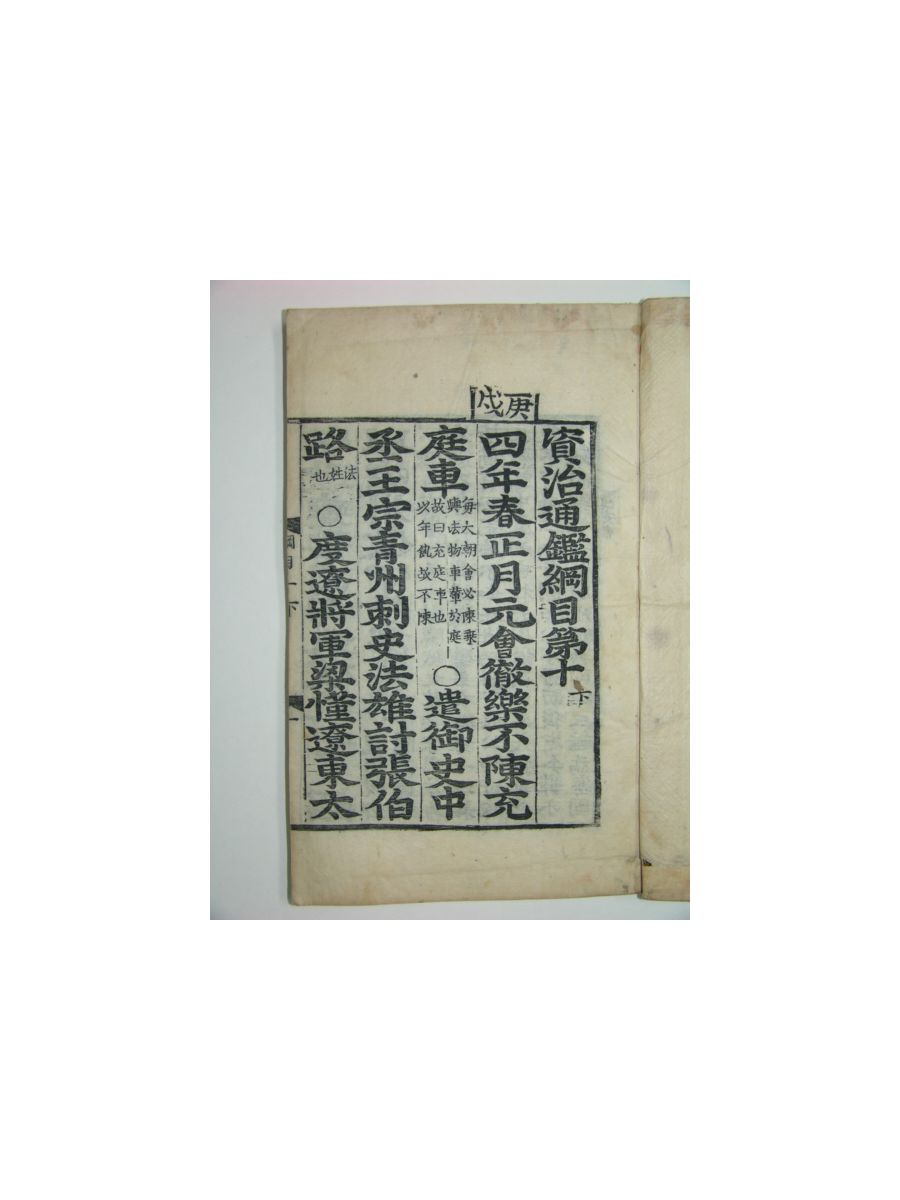 庚戌
資治通鑑綱目第十下
四年春正月元會徹樂不陳充
庭車每大朝會必陳乗輿法物車輦於庭故曰充庭車也以年飢故不陳○遣御史中
丞王宗青州刺史法雄討張伯
路法姓也○度遼將軍梁慬遼東太
綱目十下
一